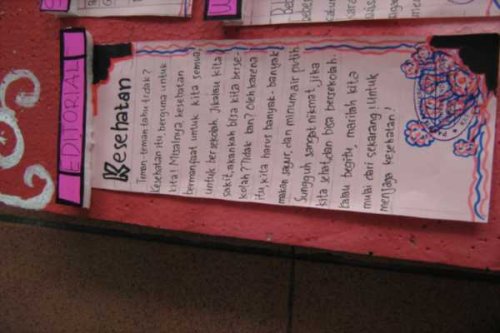 EDITORIAL
Kesehatan
Teman-teman tahu tidak?
Kesehatan itu berguna untuk
kita! Misalnya kesehatan
bermanfaat untuk kita semua,
untuk bersekolah. Jikalau kita
sakit, akankah bisa kita berse-
kolah? Tidak kan? Oleh karena
itu, kita harus banyak-banyak
makan sayur, dan minum air putih
Sungguh sangat nikmat, jika
kita dan bisa bersekolah.
Kalau begitu, marilah kita
mulai dari sekarang! Untuk
menjaga kesehatan!